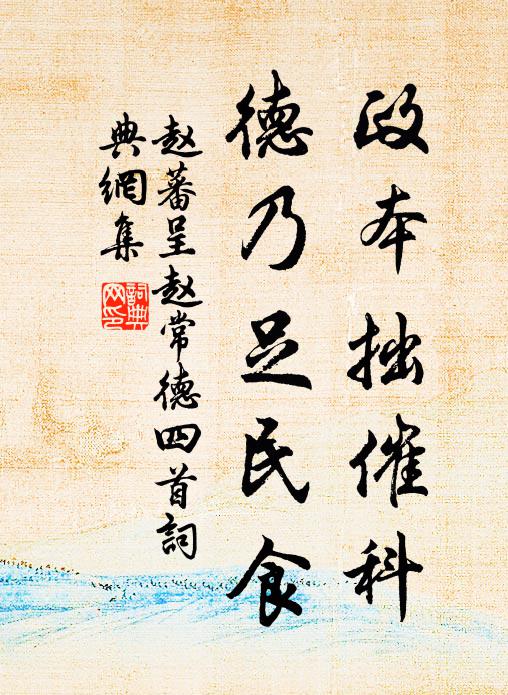 政本拙催科
德乃足民食
赵蕃呈赵常德四首词
典網集
詞典
网印